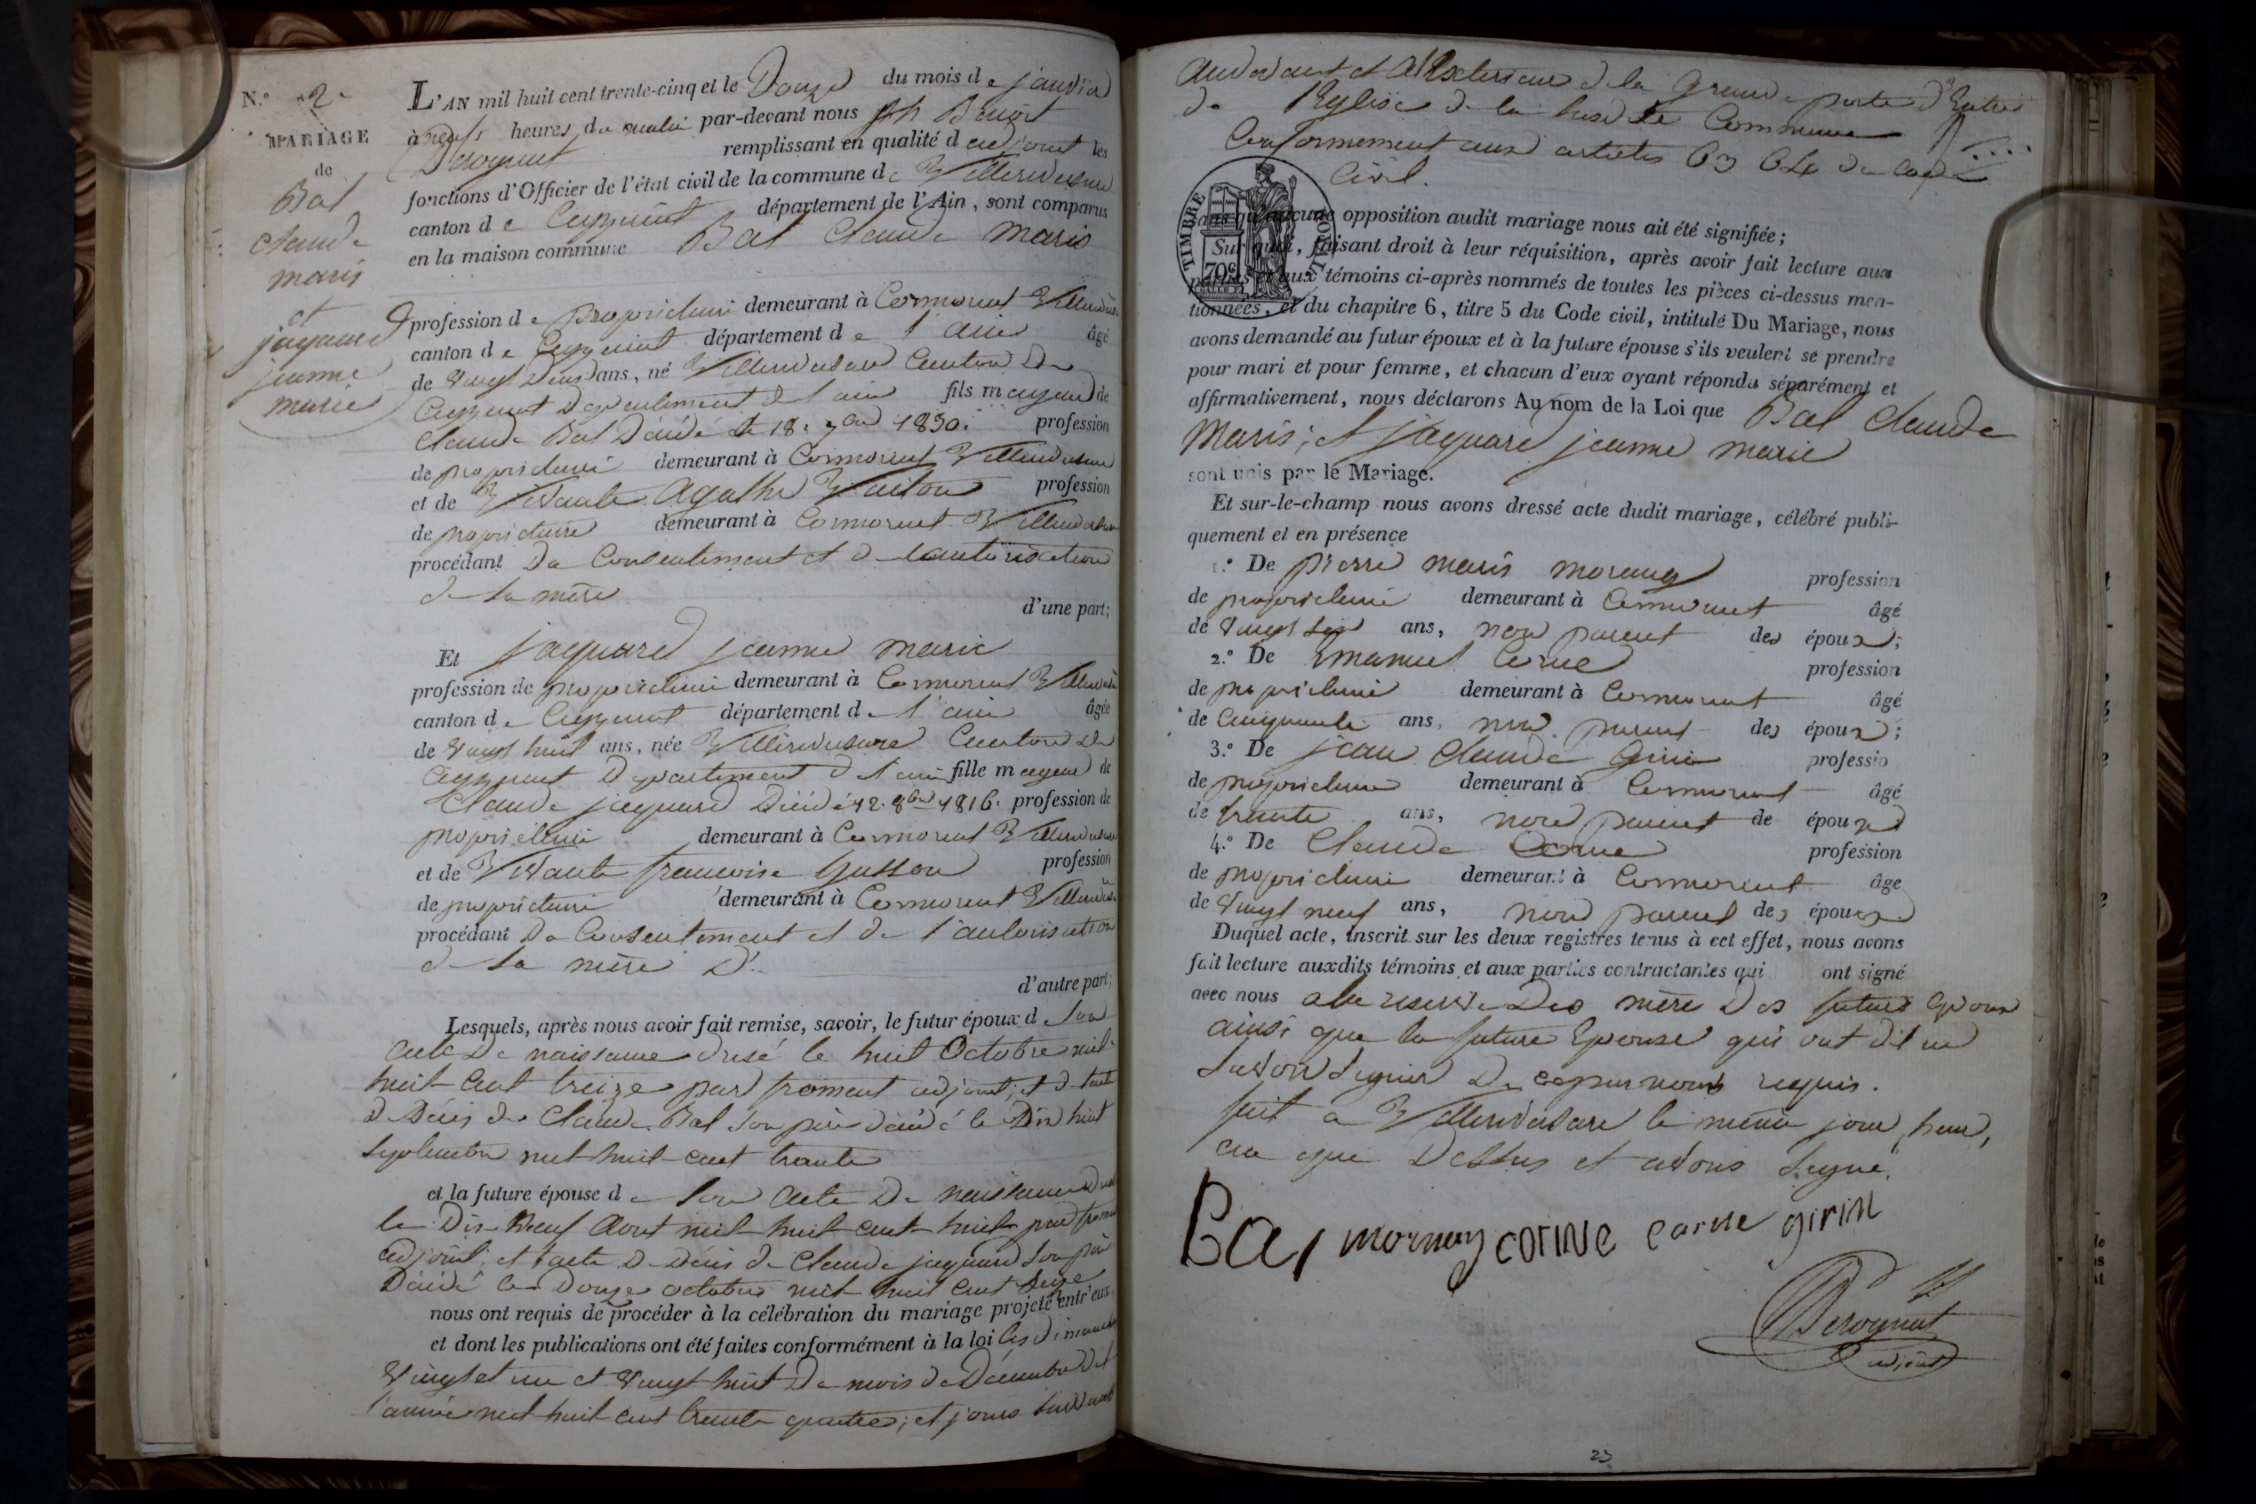 N.º 2
MARIAGE
de
Bal
Claude
marie
et
jaquard
jeanne
marie
L'AN mil huit cent trente-cinq et le Douze du mois de janvier
à neuf heures du matin par-devant nous Jh Benoit
Derognat remplissant en qualité d adjoint les
fonctions d'Officier de l'état civil de la commune de Villereversure
canton de Ceyzeriat département de l'Ain, sont comparus
en la maison commune Bal Claude Marie
profession de Propriétaire demeurant à Cormorent Villereversure
canton de Ceyzeriat département de l'ain âgé
de vingt deux ans, né Villereversure Canton de
Ceyzeriat Département de l'ain fils majeur de
Claude Bal Décédé le 18. 7bre 1830. profession
de propriétaire demeurant à Cormorent Villereversure
et de Vivante Agathe profession
de propriétaire demeurant à Cormorent Villereversure
procédant Du Consentement et de l'autorisation
de sa mère
d'une part;
Et jaquard jeanne marie
profession de propriétaire demeurant à Cormorent
canton de Ceyzeriat département de l'ain âgée
de vingt huit ans, née Villereversure Canton de
Ceyzeriat Département de l'ain fille majeure de
Claude jaquard Décédé 12. 8bre 1816. profession de
propriétaire demeurant à Cormorent Villereversure
et de Vivante françoise profession
de propriétaire demeurant à Cormorent
procédant Du Consentement et de l'autorisation
de sa mère
d'autre part;
Lesquels, après nous avoir fait remise, savoir, le futur époux de Son
acte De naissance dressé le huit Octobre mil
huit Cent treize par froment adjoint; et de l'acte
de Décès de Claude Bal son père décédé le Dix huit
Septembre mil huit cent trente
et la future épouse de Son acte De naissance
le Dix Neuf Aout mil huit cent huit par
adjoint, et l'acte de Décès de Claude jaquard son père
Décédé le Douze octobre mil huit cent seize
nous ont requis de procéder à la célébration du mariage projeté entr'eux
et dont les publications ont été faites conformément à la loi les dimanches
vingt et un et vingt huit De mois de Décembre de
l'année mil huit cent trente quatre; et jours suivants
audevant et a l'Exterieur de la grande porte d'Entrée
de l'Eglise de la susdite Commune
Conformement aux articles 63 64 du code
Civil.
TIMBRE ROYAL
70c
sans qu'aucune opposition audit mariage nous ait été signifiée;
Sur quoi, faisant droit à leur réquisition, après avoir fait lecture aux
parties et aux témoins ci-après nommés de toutes les pièces ci-dessus men-
tionnées, et du chapitre 6, titre 5 du Code civil, intitulé Du Mariage, nous
avons demandé au futur époux et à la future épouse s'ils veulent se prendre
pour mari et pour femme, et chacun d'eux ayant répondu séparément et
affirmativement, nous déclarons Au nom de la Loi que Bal Claude
Marie; et jaquard jeanne marie
sont unis par le Mariage.
Et sur-le-champ nous avons dressé acte dudit mariage, célébré publi-
quement et en présence
1.º De pierre marie profession
de propriétaire demeurant à Cormorent âgé
de vingt ans, non parent des époux;
2.º De Emanuel Corne profession
de propriétaire demeurant à Cormorent âgé
de Cinquante ans, non parent des époux;
3.º De jean Claude profession
de propriétaire demeurant à Cormorent âgé
de trente ans, non parent de époux
4.º De Claude Corne profession
de propriétaire demeurant à Cormorent âgé
de vingt neuf ans, non parent des époux
Duquel acte, inscrit sur les deux registres tenus à cet effet, nous avons
fait lecture auxdits témoins et aux parties contractantes qui ont signé
avec nous a la reserve Des mère Des futurs Epoux
ainsi que la future Epouse qui ont dit ne
Savoir Signer De ce par nous requis.
fait a Villereversure le même jour, heure,
an que Dessus et avons Signé.
Bal mornay corne corne girin
Derognat
adjoint
23